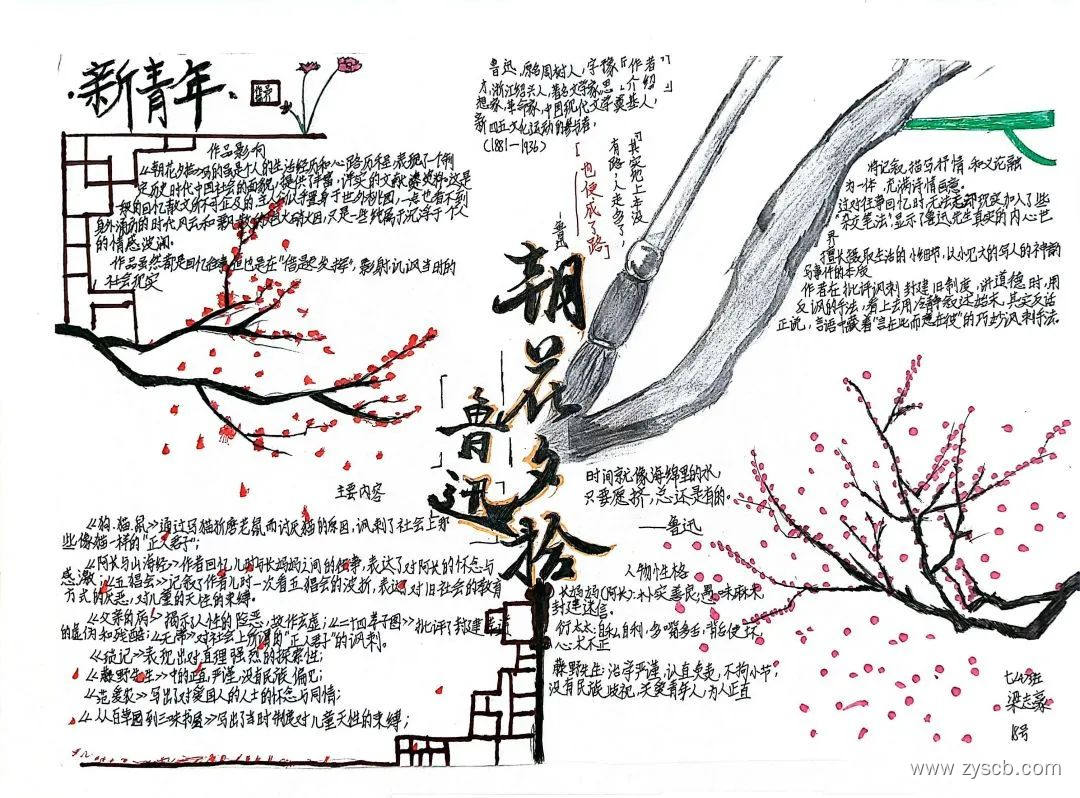 新青年
作者
介绍
鲁迅,原名周树人,字豫
才,浙江绍兴人,著名文学家,思
想家,革命家,中国现代文学奠基人,
新四五文化运动的参与者,
(1881—1936)
「其实地上本没
有路;人走多了,
也便成了路」
—鲁迅
作品影响
《朝花夕拾》写的虽是个人的生活经历和心路历程,表现了一个特
定历史时代中国社会的面貌,提供了丰富,详实的文献类资料。这是
的情感波澜。
社会现实
将记叙,描写抒情和义论融
为一体,充满诗情画意。
过对往事回忆时,无法走却现实加入了些
“杂文笔法”,显示了鲁迅先生真实的内心世
界
擅长摄取生活的小细节,以小见大的写人的神韵
写事件的本质
作者在批评讽刺封建旧制度,讲道德时,用
反讽的手法,看上去用冷静叙述始末,其实反话
正说,言语中藏着“言在此而意在彼”的巧妙讽刺手法.
朝花夕拾
鲁迅
主要内容
《狗.猫.鼠》通过写猫折磨老鼠而讨厌猫的原因,讽刺了社会上那
些像猫一样的“正人君子”;
《阿长与山海经》作者回忆儿时与长妈妈之间的往事,表达了对阿长的怀念与
感激;《五猖会》记叙了作者儿时一次看五猖会的波折,表达对旧社会的教育
方式的厌恶,对儿童的天性的束缚。
《父亲的病》揭示人性的险恶,故作玄虚;《二十四孝子图》批评了封建孝道
的虚伪和残酷;《无常》对社会上所谓的“正人君子”的讽刺。
《琐记》表现出对真理强烈的探索性;
《藤野先生》中的正直严谨,没有民族偏见;
《范爱农》写出了对爱国人的人士的怀念与同情;
《从百草园到三味书屋》写出了当时制度对儿童天性的束缚;
时间就像海绵里的水,
只要愿挤,总还是有的。
——鲁迅
人物性格
长妈妈(阿长):朴实善良,愚昧麻木,
封建迷信。
衍太太:自私自利,多嘴多舌,背后使坏,
心术不正
藤野先生:治学严谨,认真负责,不拘小节,
没有民族歧视,关爱青年人,为人正直
梁志豪
18号
www.zyscb.com